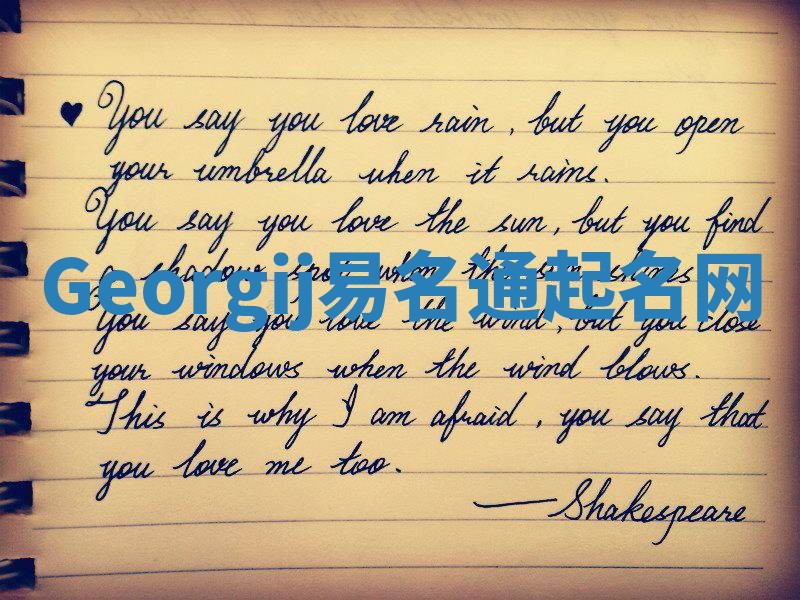 ♥ You say you love rain, but you open
your umbrella when it rains.
You say you love the sun, but you find
a shadow spot when the sun shines
Georgij易名通起名网
You say you love the wind, but you close
your windows when the wind blows.
This is why I am afraid, you say that
you love me too.
— Shakespeare